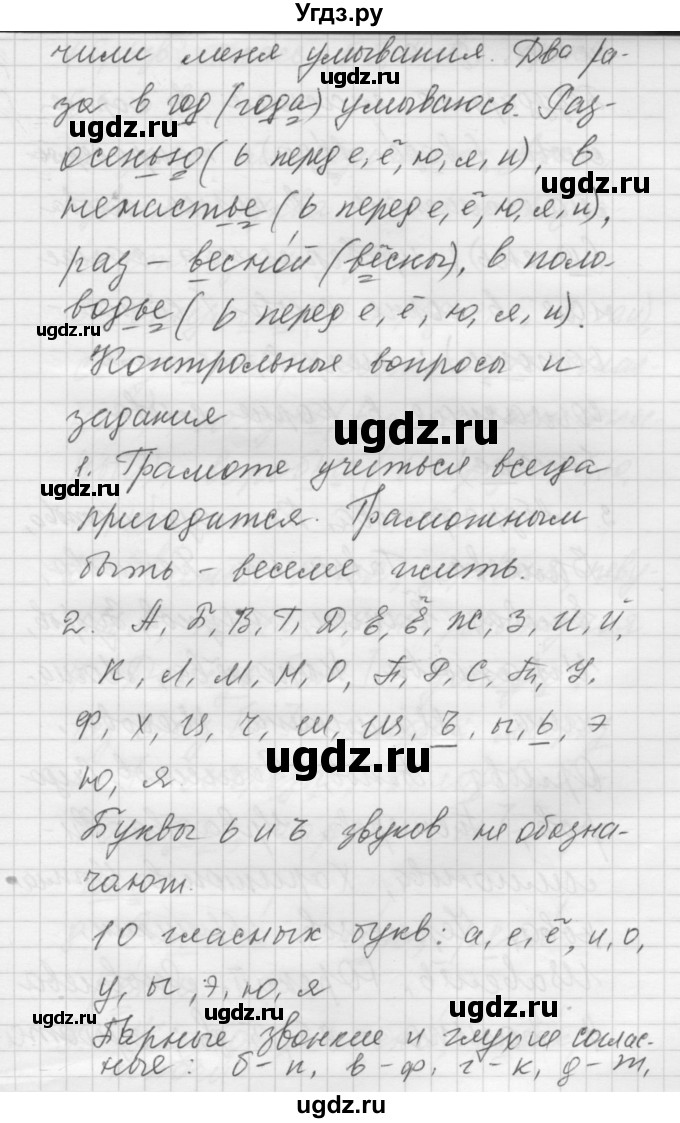 Угдз.ру
чили меня умывания. Два ра-
за в год (года) умываюсь. Раз-
осенью (ь перед е, ё, ю, я, и), в
ненастье (ь перед е, ё, ю, я, и),
раз – весной (вёсны), в поло-
водье (ь перед е, ё, ю, я, и).
Контрольные вопросы и
задания
1. Грамоте учиться всегда
пригодится. Грамотным
быть – веселее жить.
2. А, Б, В, Г, Д, Е, Ё, Ж, З, И, Й,
К, Л, М, Н, О, П, Р, С, Т, У,
Ф, Х, Ц, Ч, Ш, Щ, Ъ, ы, ь, э
ю, я.
Буквы ь и ъ звуков не обозна-
чают.
10 гласных букв: а, е, ё, и, о,
у, ы, э, ю, я
Парные звонкие и глухие соглас-
ные: б-п, в-ф, г-к, д-т,
ugdz.ru
ugdz.ru
ugdz.ru
ugdz.ru
ugdz.ru
ugdz.ru
ugdz.ru
ugdz.ru
ugdz.ru
ugdz.ru
ugdz.ru
ugdz.ru
ugdz.ru